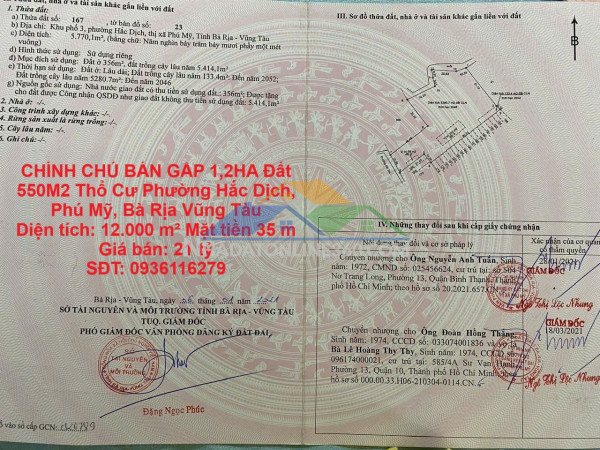 1. Thửa đất:
a) Thửa đất số: 167 , tờ bản đồ số: 23
b) Địa chỉ: Khu phố 3, phường Hắc Dịch, thị xã Phú Mỹ, Tỉnh Bà Rịa - Vũng Tàu
c) Diện tích: 5.770,1m², (bằng chữ: Năm nghìn bảy trăm bảy mươi phẩy một mét
vuông)
d) Hình thức sử dụng: Sử dụng riêng
đ) Mục đích sử dụng: Đất ở 356m², Đất trồng cây lâu năm 5.414,1m²
e) Thời hạn sử dụng: Đất ở: Lâu dài; Đất trồng cây lâu năm 133.4m²: Đến năm 2052;
Đất trồng cây lâu năm 5280.7m²: Đến năm 2046
g) Nguồn gốc sử dụng: Nhà nước giao đất có thu tiền sử dụng đất : 356m²; Được tặng
cho đất được Công nhận QSDĐ như giao đất không thu tiền sử dụng đất: 5.414,1m²
2. Nhà ở: -/-
3. Công trình xây dựng khác: -/-
4. Rừng sản xuất là rừng trồng: -/-
5. Cây lâu năm: -/-
6. Ghi chú: -/-
CHÍNH CHỦ BÁN GẤP 1,2HA Đất
550M2 Thổ Cư Phường Hắc Dịch,
Phú Mỹ, Bà Rịa Vũng Tàu
Diện tích: 12.000 m² Mặt tiền 35 m
Giá bán: 21 tỷ
SĐT: 0936116279
Bà Rịa - Vũng Tàu, ngày tháng năm
SỞ TÀI NGUYÊN VÀ MÔI TRƯỜNG TỈNH BÀ RỊA - VŨNG TÀU
TUQ. GIÁM ĐỐC
PHÓ GIÁM ĐỐC VĂN PHÒNG ĐĂNG KÝ ĐẤT ĐAI
SỞ
TÀI NGUYÊN
VÀ
MÔI TRƯỜNG
Đặng Ngọc Phúc
số vào sổ cấp GCN:
III. Sơ đồ thửa đất, nhà ở và tài sản khác gắn liền với đất
B
IV. Những thay đổi sau khi cấp giấy chứng nhận
Nội dung thay đổi và cơ sở pháp lý
Xác nhận của cơ quan
có thẩm quyền
Chuyển nhượng cho Ông Nguyễn Anh Tuấn, Sinh
năm: 1972, CMND số: 025456624, cư trú tại: số
Nơ Trang Long, Phường 13, Quận Bình Thạnh, Thành
phố Hồ Chí Minh; theo hồ sơ số
28/01/2021
GIÁM ĐỐC
Ngô Thị Lộc Nhung
Chuyển nhượng cho Ông Đoàn Hồng Thắng,
Sinh năm: 1974, CCCD số: 033074001836 và vợ là
Bà Lê Hoàng Thy Thy, Sinh năm: 1974, CCCD số:
096174000021, cư trú tại: 585/4A Sư Vạn Hạnh,
Phường 13, Quận 10, Thành phố Hồ Chí Minh; theo
hồ sơ số 000.00.33.H06-210304-0114.CN
GIÁM ĐỐC
18/03/2021
Ngô Thị Lộc Nhung